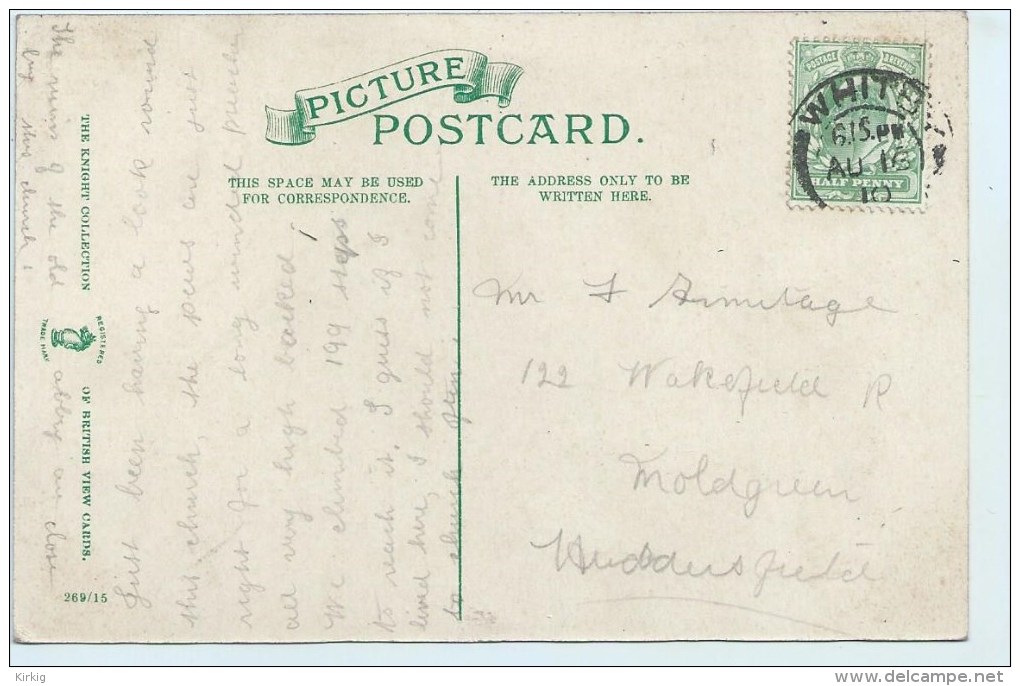 PICTURE
POSTCARD.
THIS SPACE MAY BE USED
FOR CORRESPONDENCE.
THE ADDRESS ONLY TO BE
WRITTEN HERE.
POSTAGE & REVENUE
HALF PENNY
WHITBY
6.15.PM
AU 16
10
Mr F Armitage
122 Wakefield R
Moldgreen
Huddersfield
Just been having a look round
this church, the pews are just
right for a long winded preacher
all very high backed,
We climbed 199 steps
to reach it. I guess if I
lived here, I should not come
to church often.
The ruins of the old abbey are close
by this church!
THE KNIGHT COLLECTION
REGISTERED
TRADE MARK
OF BRITISH VIEW CARDS.
269/15
Kirkig
www.delcampe.net